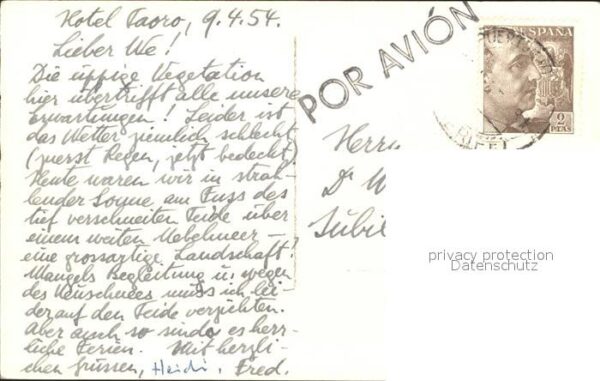 Hotel Taoro, 9.4.54.
Lieber We!
Die üppige Vegetation
hier übertrifft alle unsere
Erwartungen! Leider ist
das Wetter ziemlich schlecht
(zuerst Regen, jetzt bedeckt)
Heute waren wir in strah-
lender Sonne am Fuss des
tief verschneiten Teide über
einem weiten Nebelmeer –
eine grossartige Landschaft!
Mangels Begleitung u. wegen
des Neuschnees muss ich lei-
der auf den Teide verzichten.
Aber auch so sind es herr-
liche Ferien. Mit herzli-
chen Grüssen, Heidi, Fred.
POR AVIÓN
ESPAÑA
2
PTAS
Herrn
Dr W
privacy protection
Datenschutz